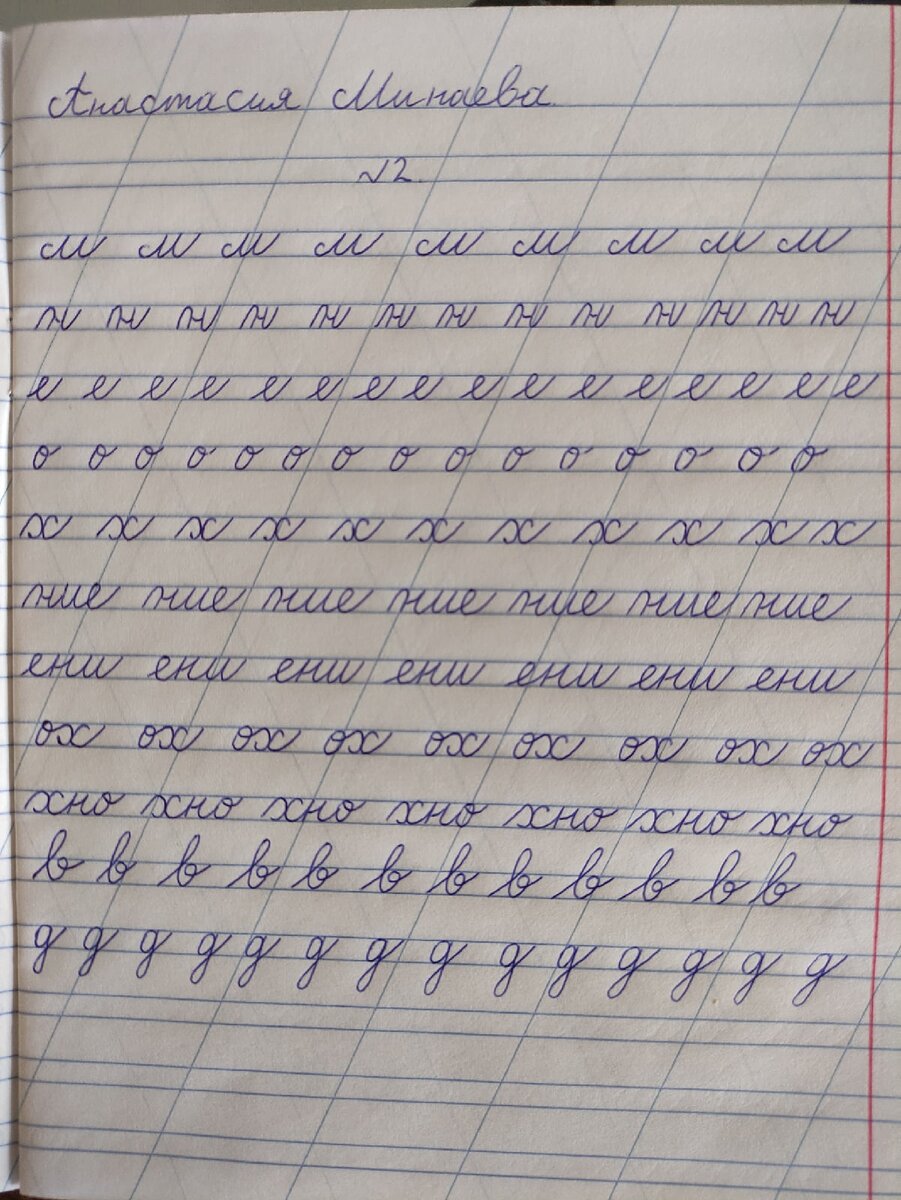 Анастасия Минаева.
√2.
м м м м м м м м м
н н н н н н н н н н н н н
е е е е е е е е е е е е е е е е
о о о о о о о о о о о о о о о
х х х х х х х х х х х
ние ние ние ние ние ние ние
ени ени ени ени ени ени ени
ох ох ох ох ох ох ох ох ох
хно хно хно хно хно хно хно
в в в в в в в в в в в в
д д д д д д д д д д д д д д